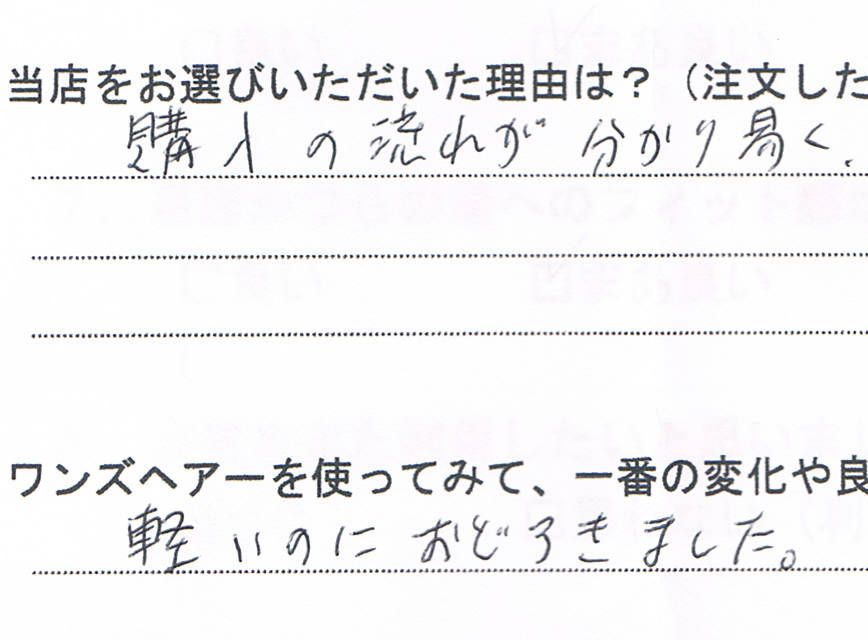 当店をお選びいただいた理由は?(注文した
購入の流れが分かり易く、
ワンズヘアーを使ってみて、一番の変化や良
軽いのにおどろきました。